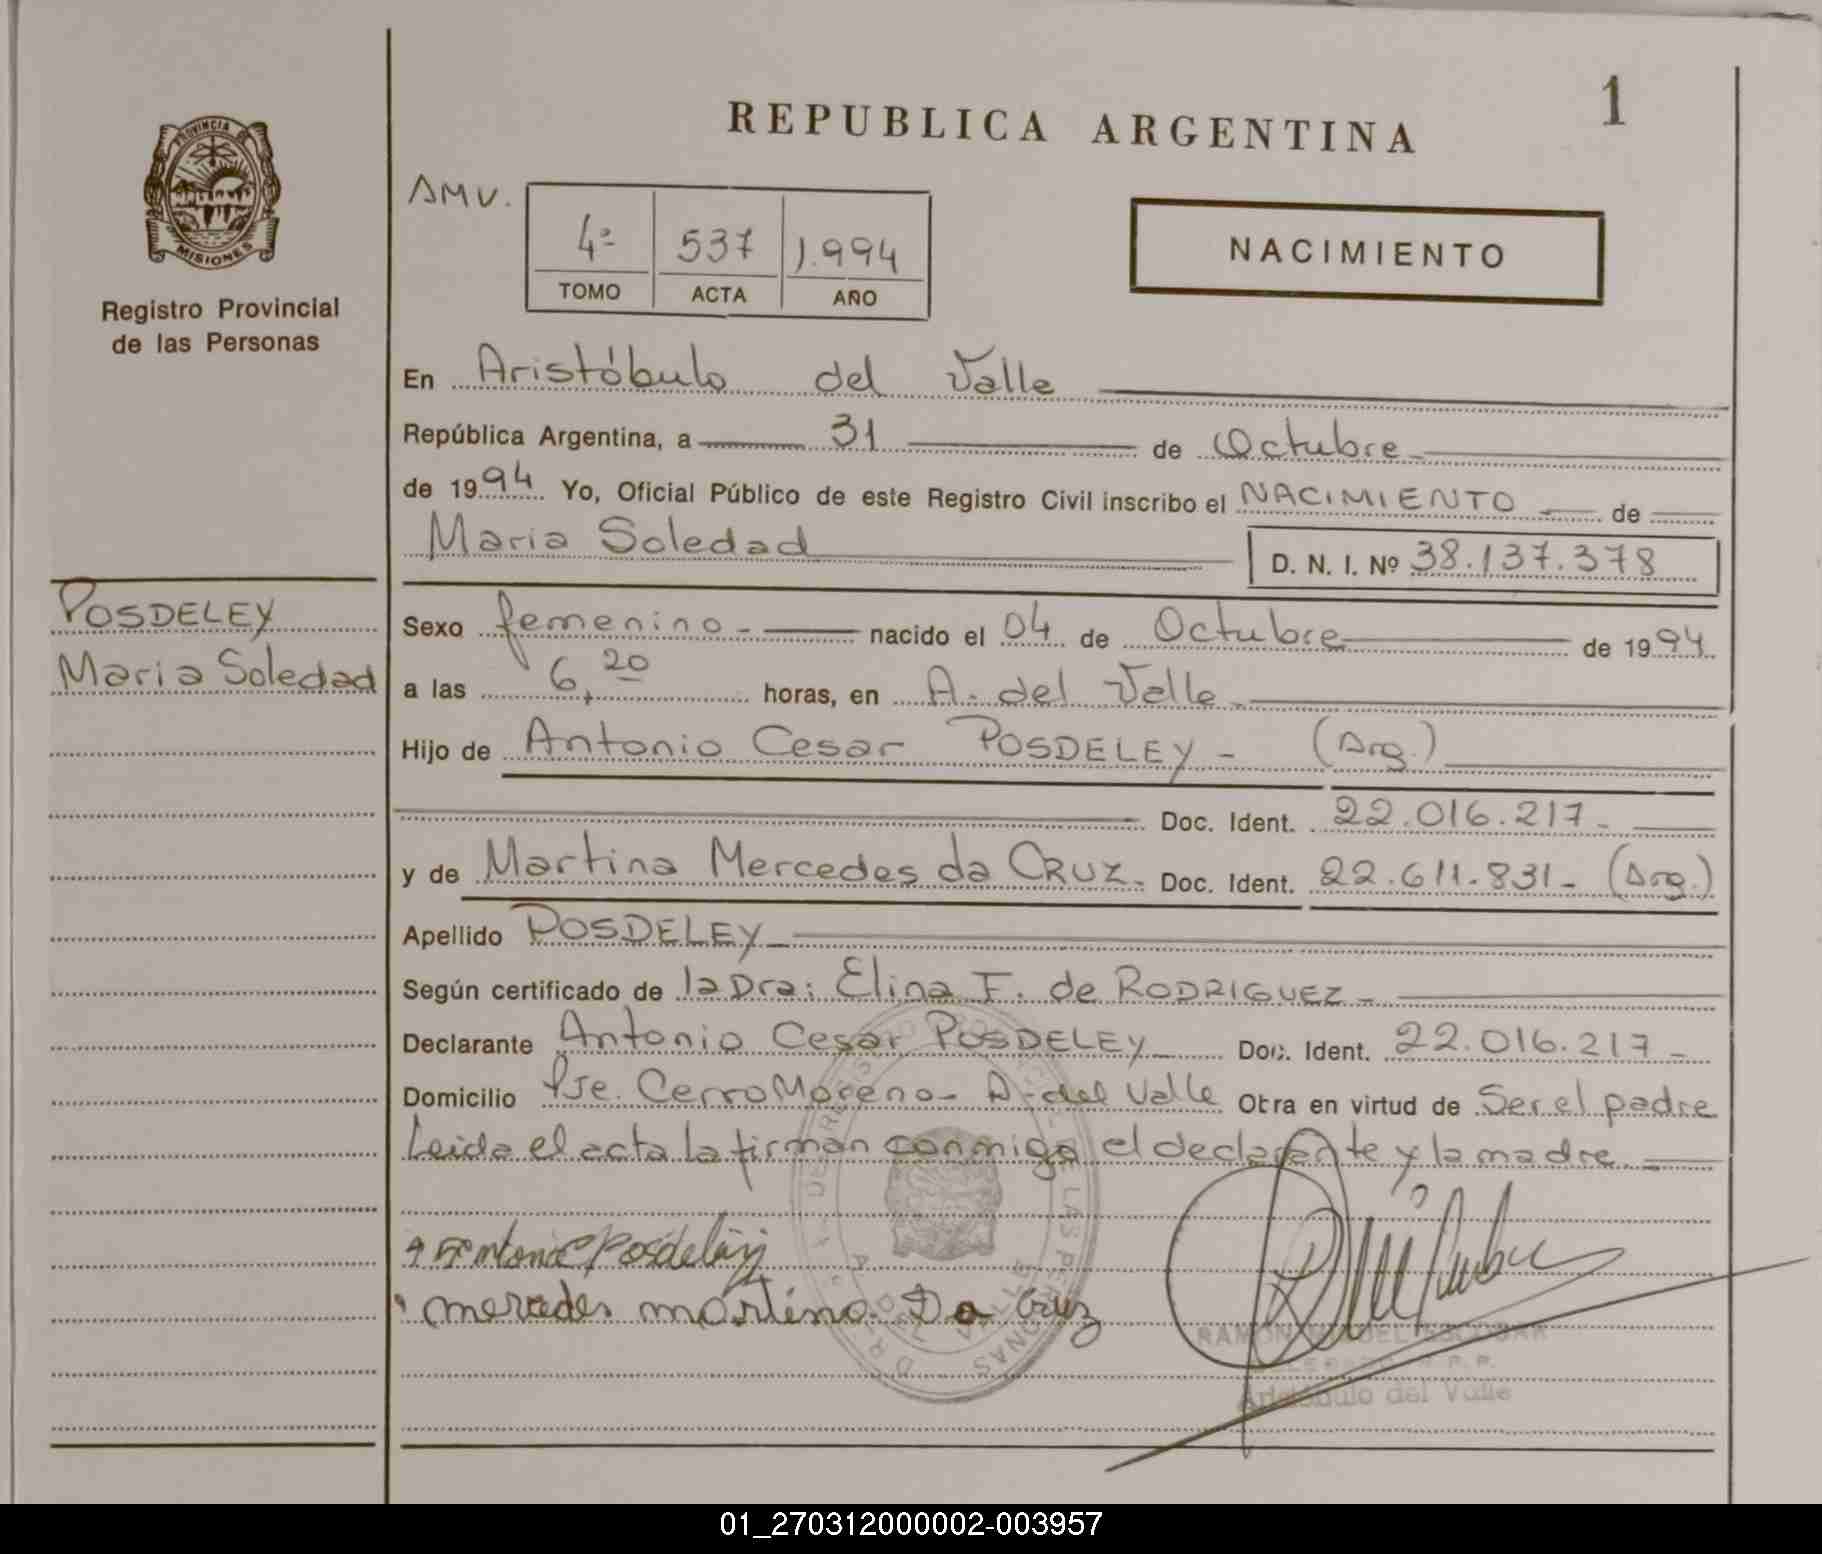 REPUBLICA ARGENTINA
1
PROVINCIA
MISIONES
Registro Provincial
de las Personas
AMV.
4º 537 1.994
TOMO ACTA AÑO
NACIMIENTO
En Aristóbulo del Valle
República Argentina, a 31 de Octubre
de 1994 Yo, Oficial Público de este Registro Civil inscribo el NACIMIENTO de
Maria Soledad D. N. I. Nº 38.137.378
POSDELEY
Maria Soledad
Sexo femenino - nacido el 04 de Octubre de 1994
a las 6,20 horas, en A. del Valle
Hijo de Antonio Cesar POSDELEY - (Arg.)
Doc. Ident. 22.016.217-
y de Martina Mercedes da CRUZ. Doc. Ident. 22.611.831- (Arg.)
Apellido POSDELEY
Según certificado de la Dra: Elina F. de RODRIGUEZ -
Declarante Antonio Cesar POSDELEY Doc. Ident. 22.016.217 -
Domicilio Pje. Cerro Moreno - A. del Valle Obra en virtud de Ser el padre
Leida el acta la firman conmigo el declarante y la madre.
Antonio Posdeley
mercedes martina Da Cruz
RAMON MIGUEL ESCOBAR
Aristóbulo del Valle
01_270312000002-003957